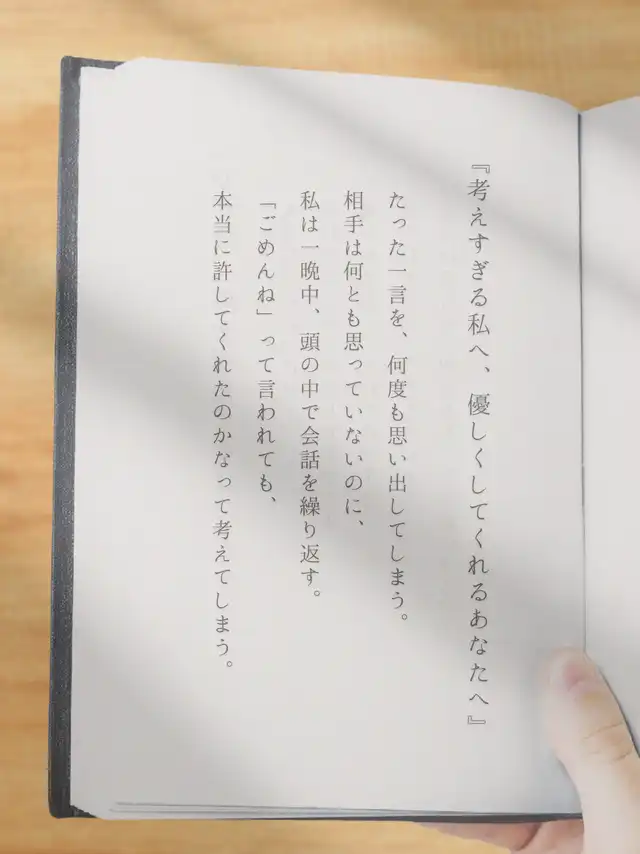 『考えすぎる私へ、優しくしてくれるあなたへ』
たった一言を、何度も思い出してしまう。
相手は何とも思っていないのに、
私は一晩中、頭の中で会話を繰り返す。
「ごめんね」って言われても、
本当に許してくれたのかなって考えてしまう。